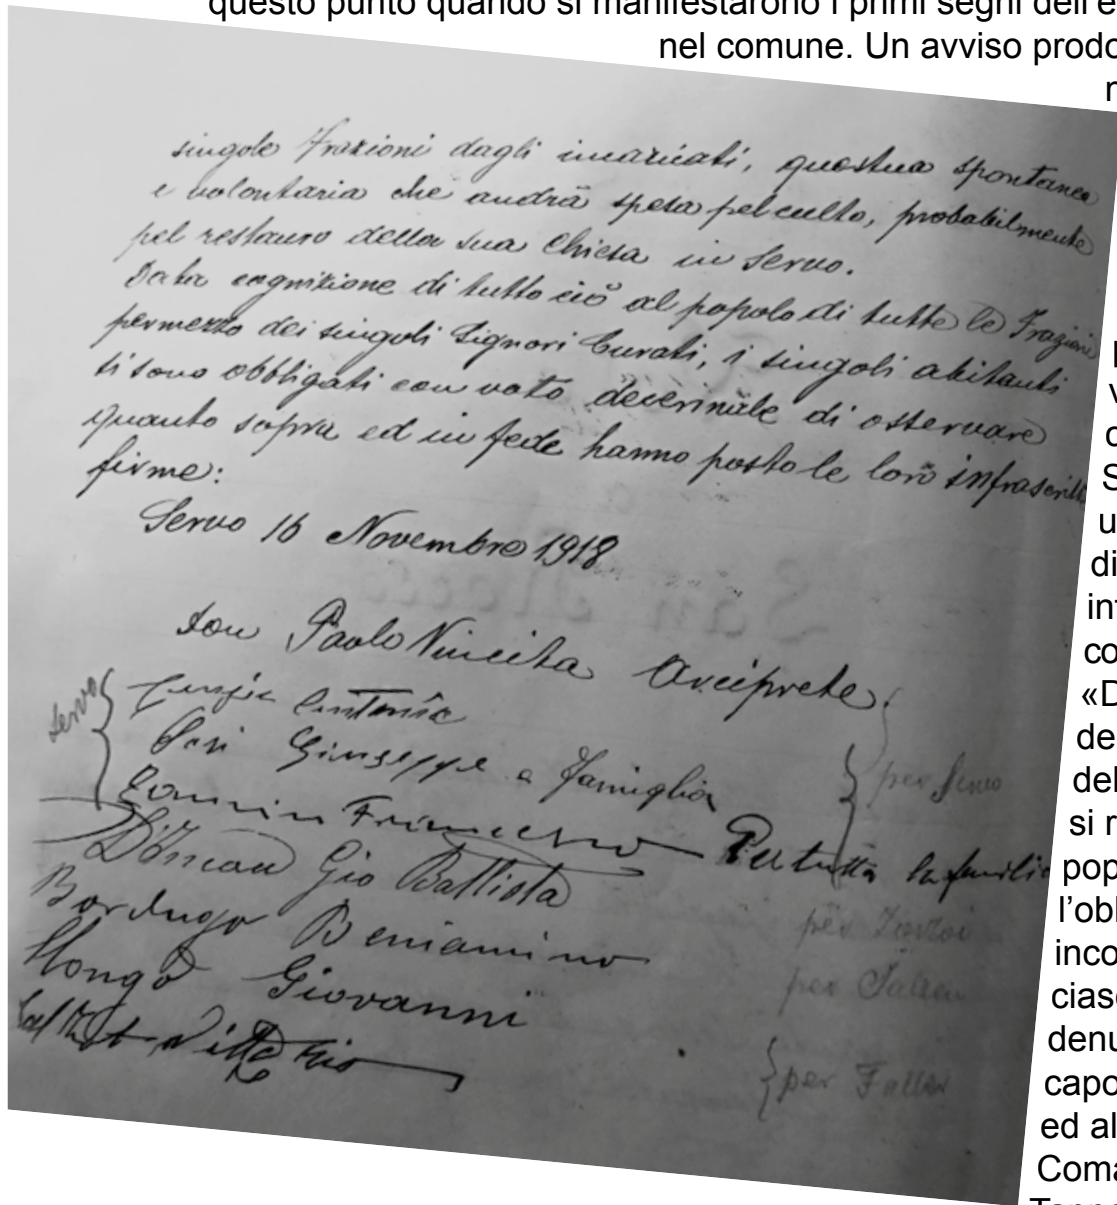 questo punto quando si manifestarono i primi segni dell'e
nel comune. Un avviso prodo
singole frazioni dagli incaricati, questua spontanea
e volontaria che andrà spesa pel culto, probabilmente
pel restauro della sua Chiesa in Servo.
Data cognizione di tutto ciò al popolo di tutte le Frazioni
permezzo dei singoli Signori Curati, i singoli abitanti
si sono obbligati con voto decennale di osservare
quanto sopra ed in fede hanno posto le loro infrascritte
firme:
Servo 16 Novembre 1918
don Paolo Vincita Arciprete
Servo
Giuseppe e famiglia
per Servo
Francesco Per tutta la familia
Gio Battista
per Zorzoi
Bordugo Beniamino
per
Slongo Giovanni
Vittorio
per Faller
di
int
co
«D
de
del
si r
pop
l'obl
inco
cias
denu
capo
ed al
Coma